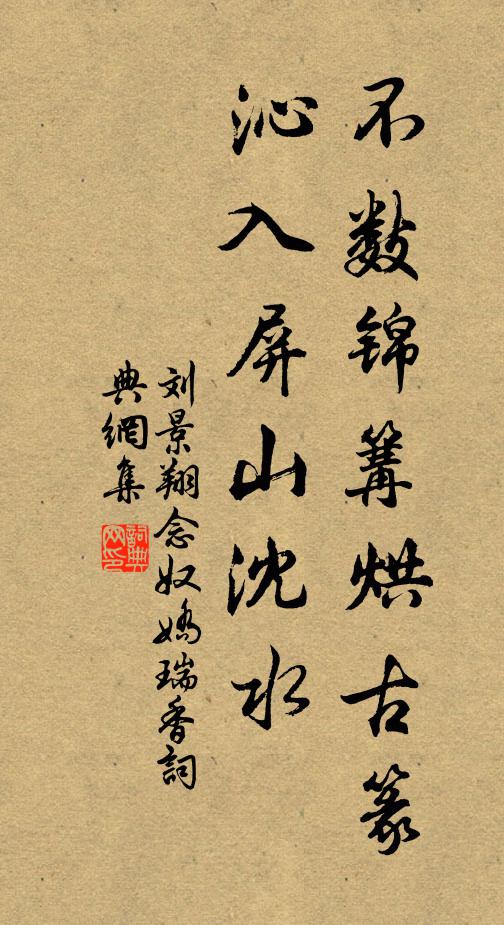 不数锦篝烘古篆
沁入屏山沈水
刘景翔念奴嬌瑞香詞
典網集
詞典網印